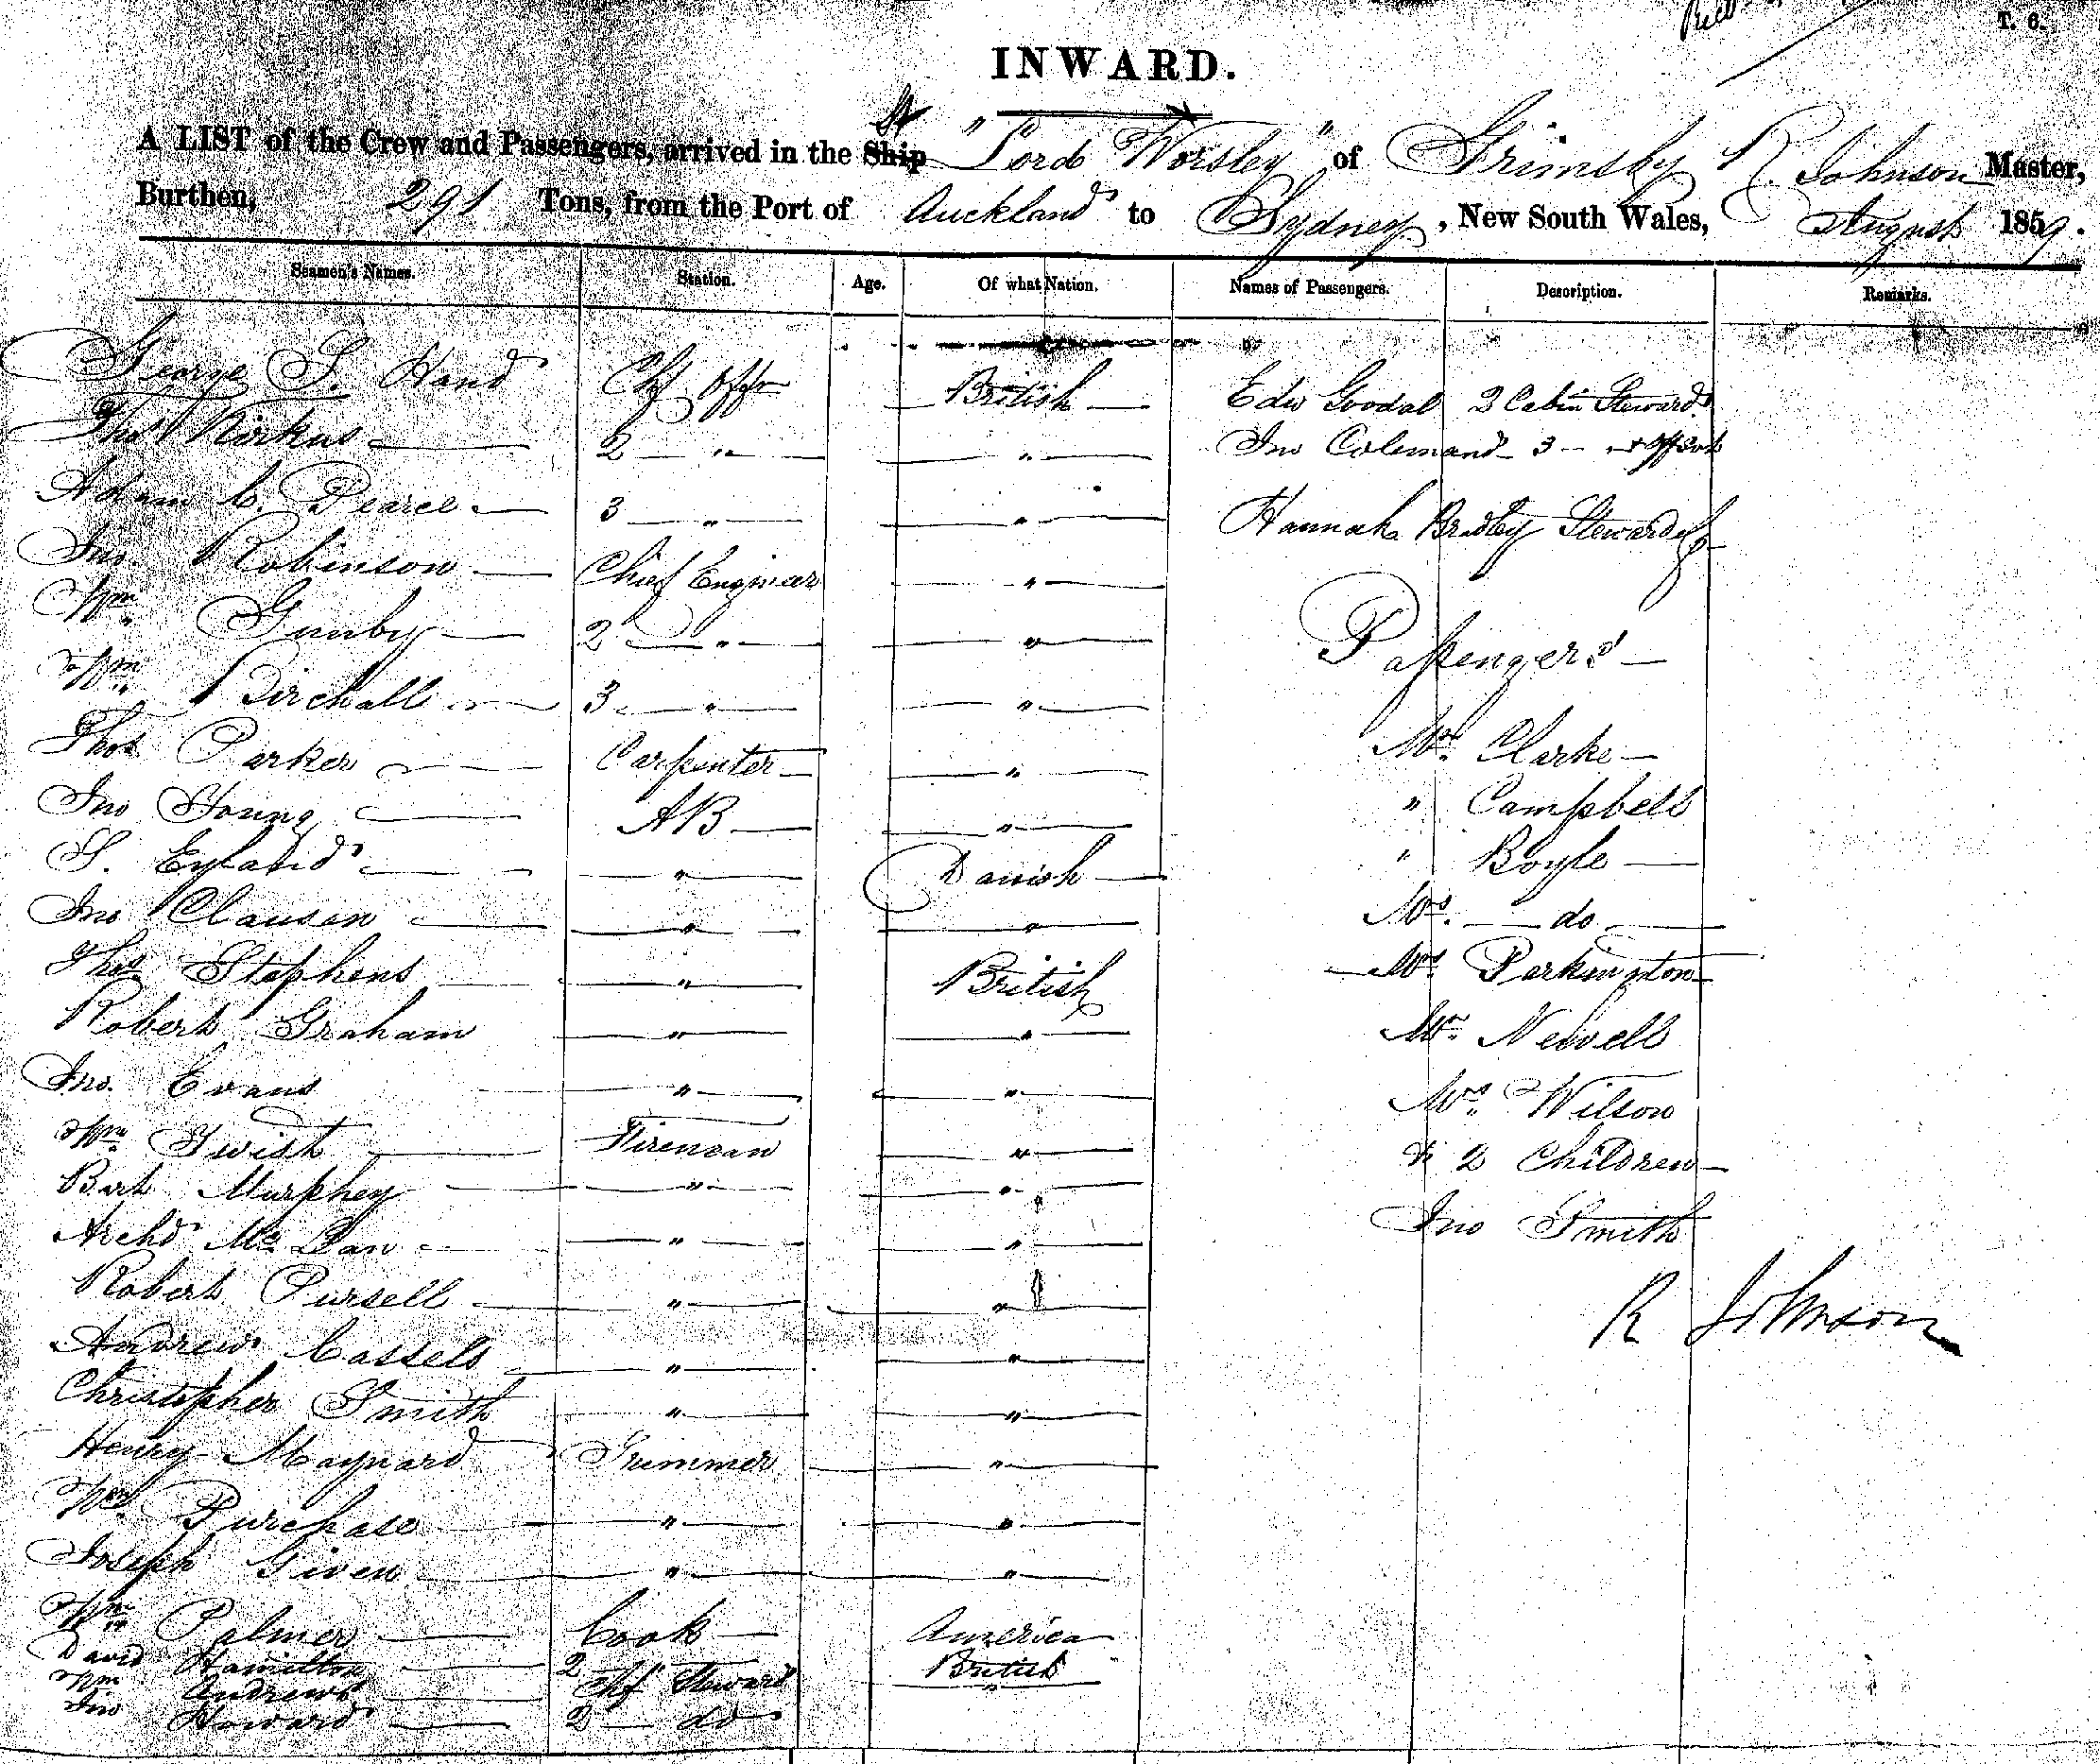 T. 6.
INWARD.
A LIST of the Crew and Passengers, arrived in the Ship St "Lord Worsley" of Grimsby R. Johnson Master,
Burthen, 291 Tons, from the Port of Auckland to Sydney, New South Wales, August 1859.
Seamen's Names. Station. Age. Of what Nation. Names of Passengers. Description. Remarks.
George S. Hand Chf Offr British Edw Goodal 2 Cabin Steward
Thos Kirkus 2 " " Jno Colemand 3 - "
Adam C. Pearce 3 " " Hannah Bradley Stewardess
Jno Robinson Chief Engineer "
Wm Gunby 2 " " Passengers
Wm Birchall 3 " "
Thos Parker Carpenter " Mr. Clarke
Jno Young AB " " Campbell
S. Eyland " Danish " Boyle
Jno Clausen " " Mrs. do
Thos Stephens " British Mrs Parkington
Robert Graham " " Mr. Newell
Jno. Evans " " Mrs. Wilson
Wm Twist Fireman " & 2 Children
Bart Murphey " "
Archd Mc Dan " " Jno Smith
Robert Pursell " " R Johnson
Andrew Cassels " "
Christopher Smith " "
Henry Maynard Trimmer "
Wm Purchase " "
Joseph Given " "
Wm Palmer Cook America
David Hamilton 2 " British
Wm Andrews Chf Steward "
Jno Howard 2 do